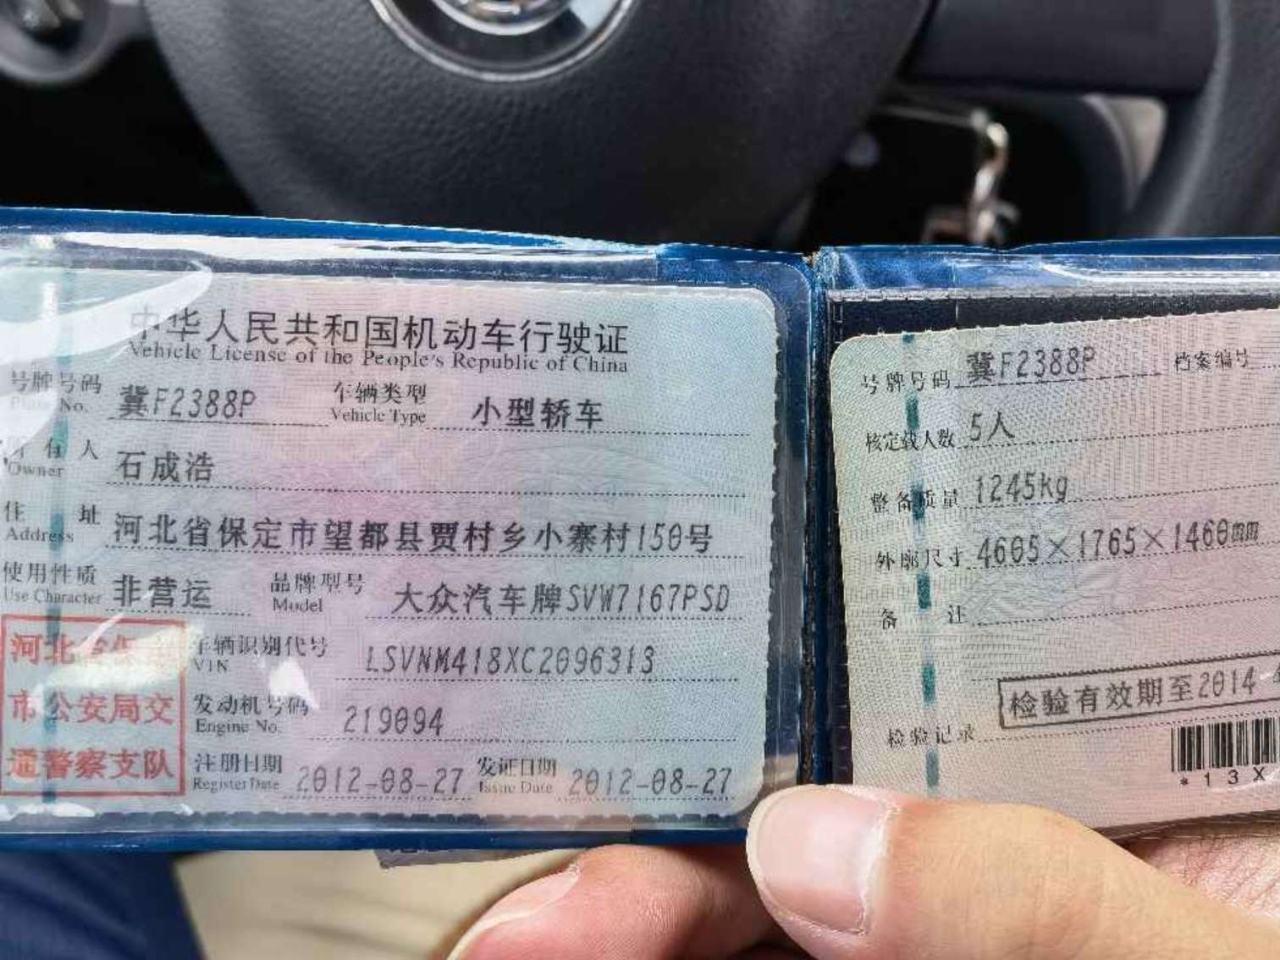 中华人民共和国机动车行驶证
Vehicle License of the People's Republic of China
号牌号码 冀F2388P 车辆类型 小型轿车
Plate No. Vehicle Type
所有人 石成浩
Owner
住址 河北省保定市望都县贾村乡小寨村150号
Address
使用性质 非营运 品牌型号 大众汽车牌SVW7167PSD
Use Character Model
河北省保定
市公安局交
通警察支队
车辆识别代号 LSVNM418XC2096313
VIN
发动机号码 219094
Engine No.
注册日期 2012-08-27 发证日期 2012-08-27
Register Date Issue Date
号牌号码 冀F2388P 档案编号
核定载人数 5人
整备质量 1245kg
外廓尺寸 4605×1765×1460mm
备注
检验有效期至2014-
检验记录
*13X